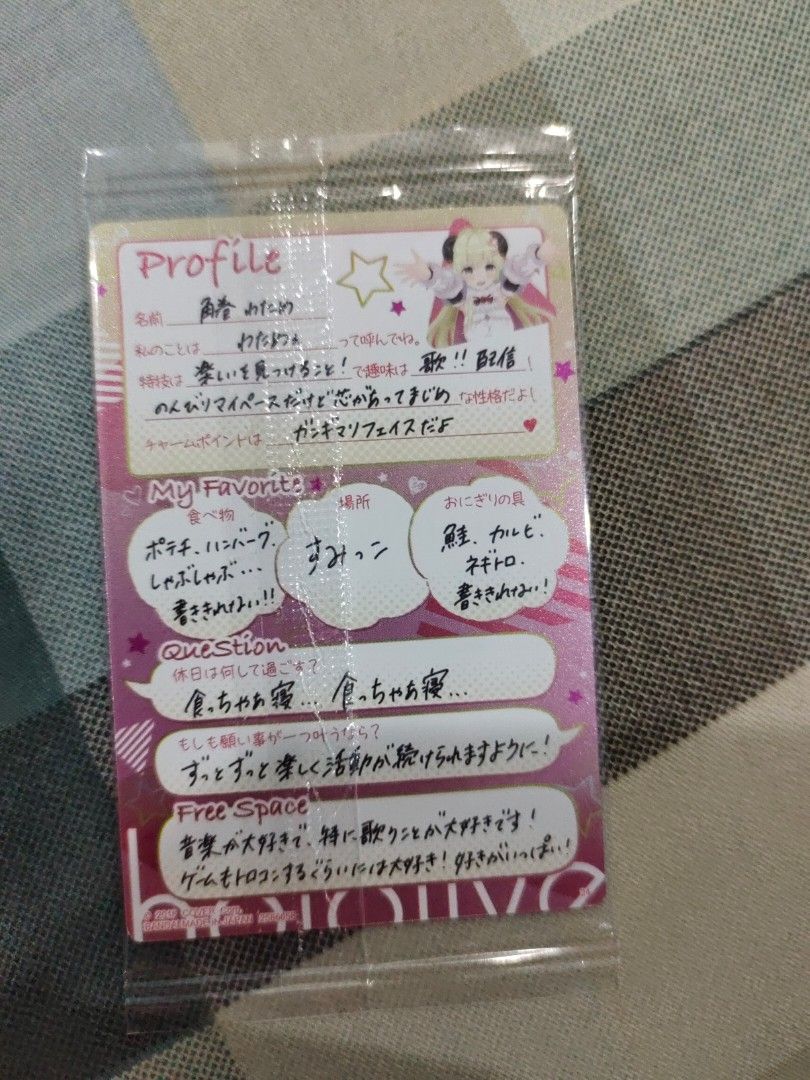 Profile
名前 角巻 わため
私のことは わためぇ って呼んでね。
特技は 楽しいを見つけること! で趣味は 歌!! 配信 !
のんびりマイペースだけど芯があってまじめ な性格だよ!
チャームポイントは ガンギマリフェイスだよ ♥
My Favorite
食べ物
ポテチ、ハンバーグ、
しゃぶしゃぶ…
書ききれない!!
場所
すみっこ
おにぎりの具
鮭、カルビ、
ネギトロ、
書ききれない!
Question
休日は何して過ごす?
食っちゃあ寝… 食っちゃあ寝…
もしも願い事が一つ叶うなら?
ずっとずっと楽しく活動が続けられますように!
Free Space
音楽が大好きで、特に歌うことが大好きです!
ゲームもトロコンするぐらいには大好き! 好きがいっぱい!
hololive
COVER Corp.
BANDAI MADE IN JAPAN